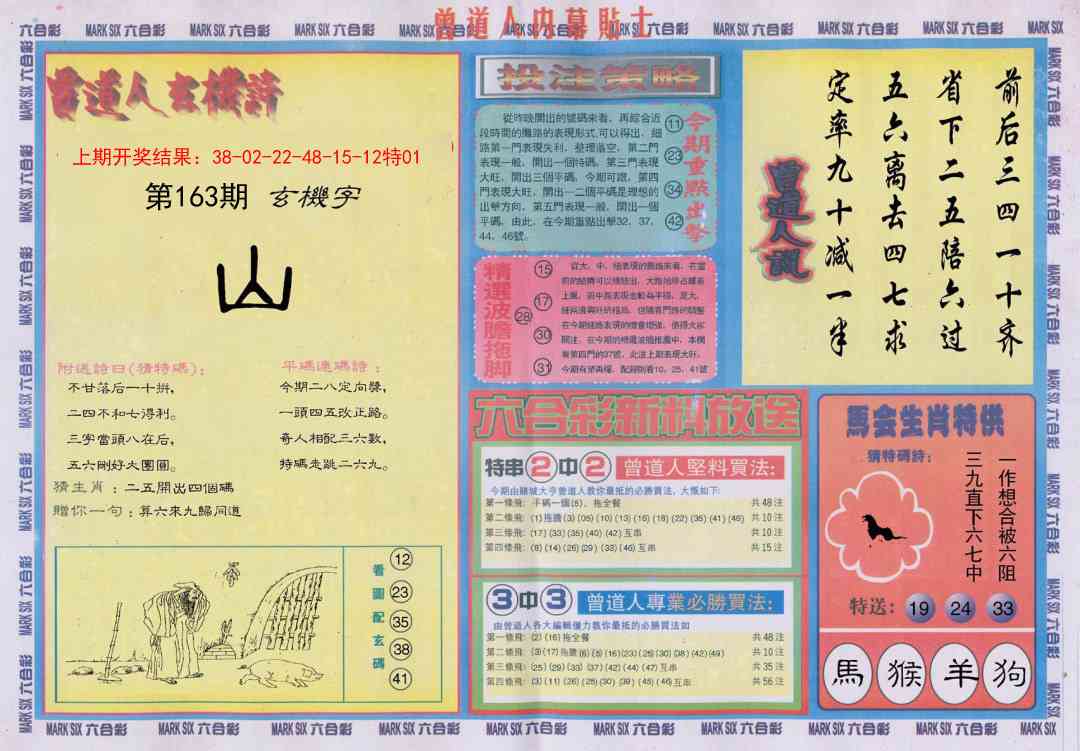 曾道人内幕貼士
六合彩 MARK SIX 六合彩 MARK SIX 六合彩 MARK SIX 六合彩 MARK SIX 六合彩
曾道人玄機詩
上期开奖结果：38-02-22-48-15-12特01
第163期 玄機字
山
附送詩曰(猜特碼)：
不甘落后一十拚，
二四不和七得利。
三字當頭八在后，
五六剛好大團圓。
平碼連碼詩：
今期二八定向襲，
一頭四五改正路。
奇人相配三六數，
特碼走跳二六九。
猜生肖：二五開出四個碼
贈你一句：算六來九歸同道
看圖配玄碼
12
23
35
38
41
投注策略
從昨晚開出的號碼來看，再綜合近
段時間的攤路的表現形式,可以得出，細
路第一門表現失利，整理落空，第二門
表現一般，開出一個特碼，第三門表現
大旺，開出三個平碼，今期可跟，第四
門表現大旺，開出一二個平碼是理想的
出擊方向，第五門表現一般，開出一個
平碼，由此，在今期重點出擊32，37，
44，46號。
今期重點出擊
11
23
34
42
精選波膽拖脚
15
17
28
30
31
今期有望再爆，配腳則看10、25、41號
六合彩新料放送
特串2中2 曾道人堅料買法：
今期由賭城大亨曾道人教你最抵的必勝買法，大慨如下：
第一條飛：平碼一個(5)，拖全餐 共48注
第二條飛：(1)拖膽(3)(05)(10)(13)(16)(18)(22)(35)(41)(46) 共10注
第三條飛：(17)(33)(35)(40)(42)互串 共10注
第四條飛：(8)(14)(26)(29)(33)(46)互串 共15注
3中3 曾道人專業必勝買法：
由曾道人各大編輯僮力教你最抵的必勝買法如
第一條飛：(2)(16)拖全餐 共48注
第二條飛：(3)(17)拖膽(6)(8)(16)(23)(25)(30)(38)(42)(49) 共10注
第三條飛：(25)(29)(33)(37)(42)(44)(47)互串 共35注
第四條飛：(3)(11)(26)(28)(30)(39)(45)(46)互串 共56注
曾道人說
前后三四一十齐
省下二五陪六过
五六离去四七求
定率九十减一半
馬会生肖特供
猜特碼詩：
一作想合被六阻
三九直下六七中
特送：19 24 33
馬 猴 羊 狗
MARK SIX 六合彩 MARK SIX 六合彩 MARK SIX 六合彩 MARK SIX 六合彩